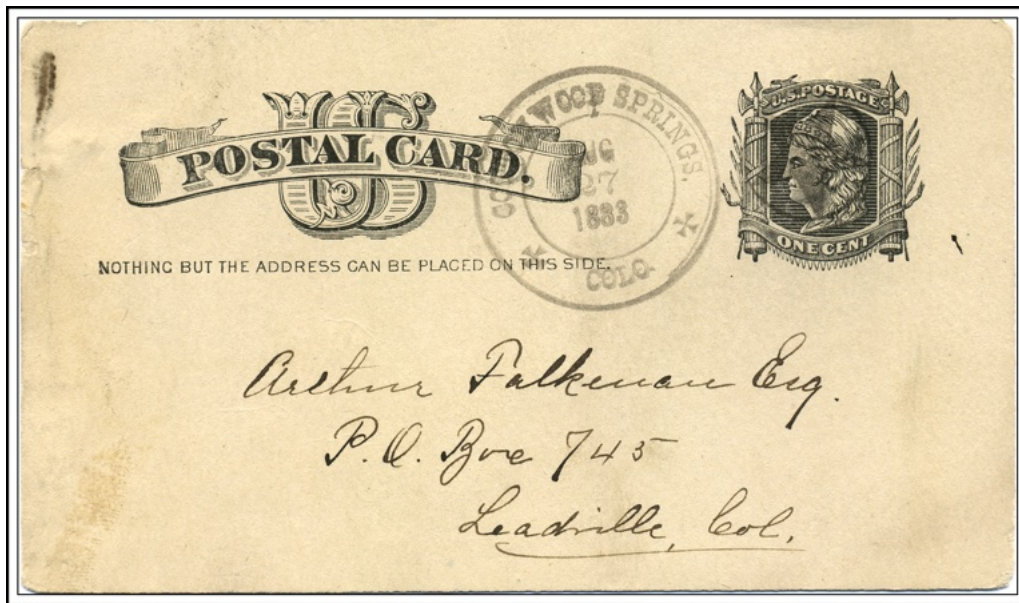 US
POSTAL CARD.
NOTHING BUT THE ADDRESS CAN BE PLACED ON THIS SIDE.
COTTONWOOD SPRINGS.
AUG
27
1883
COLO.
U.S. POSTAGE
ONE CENT
Arthur Falkenau Esq.
P.O. Box 745
Leadville, Col.